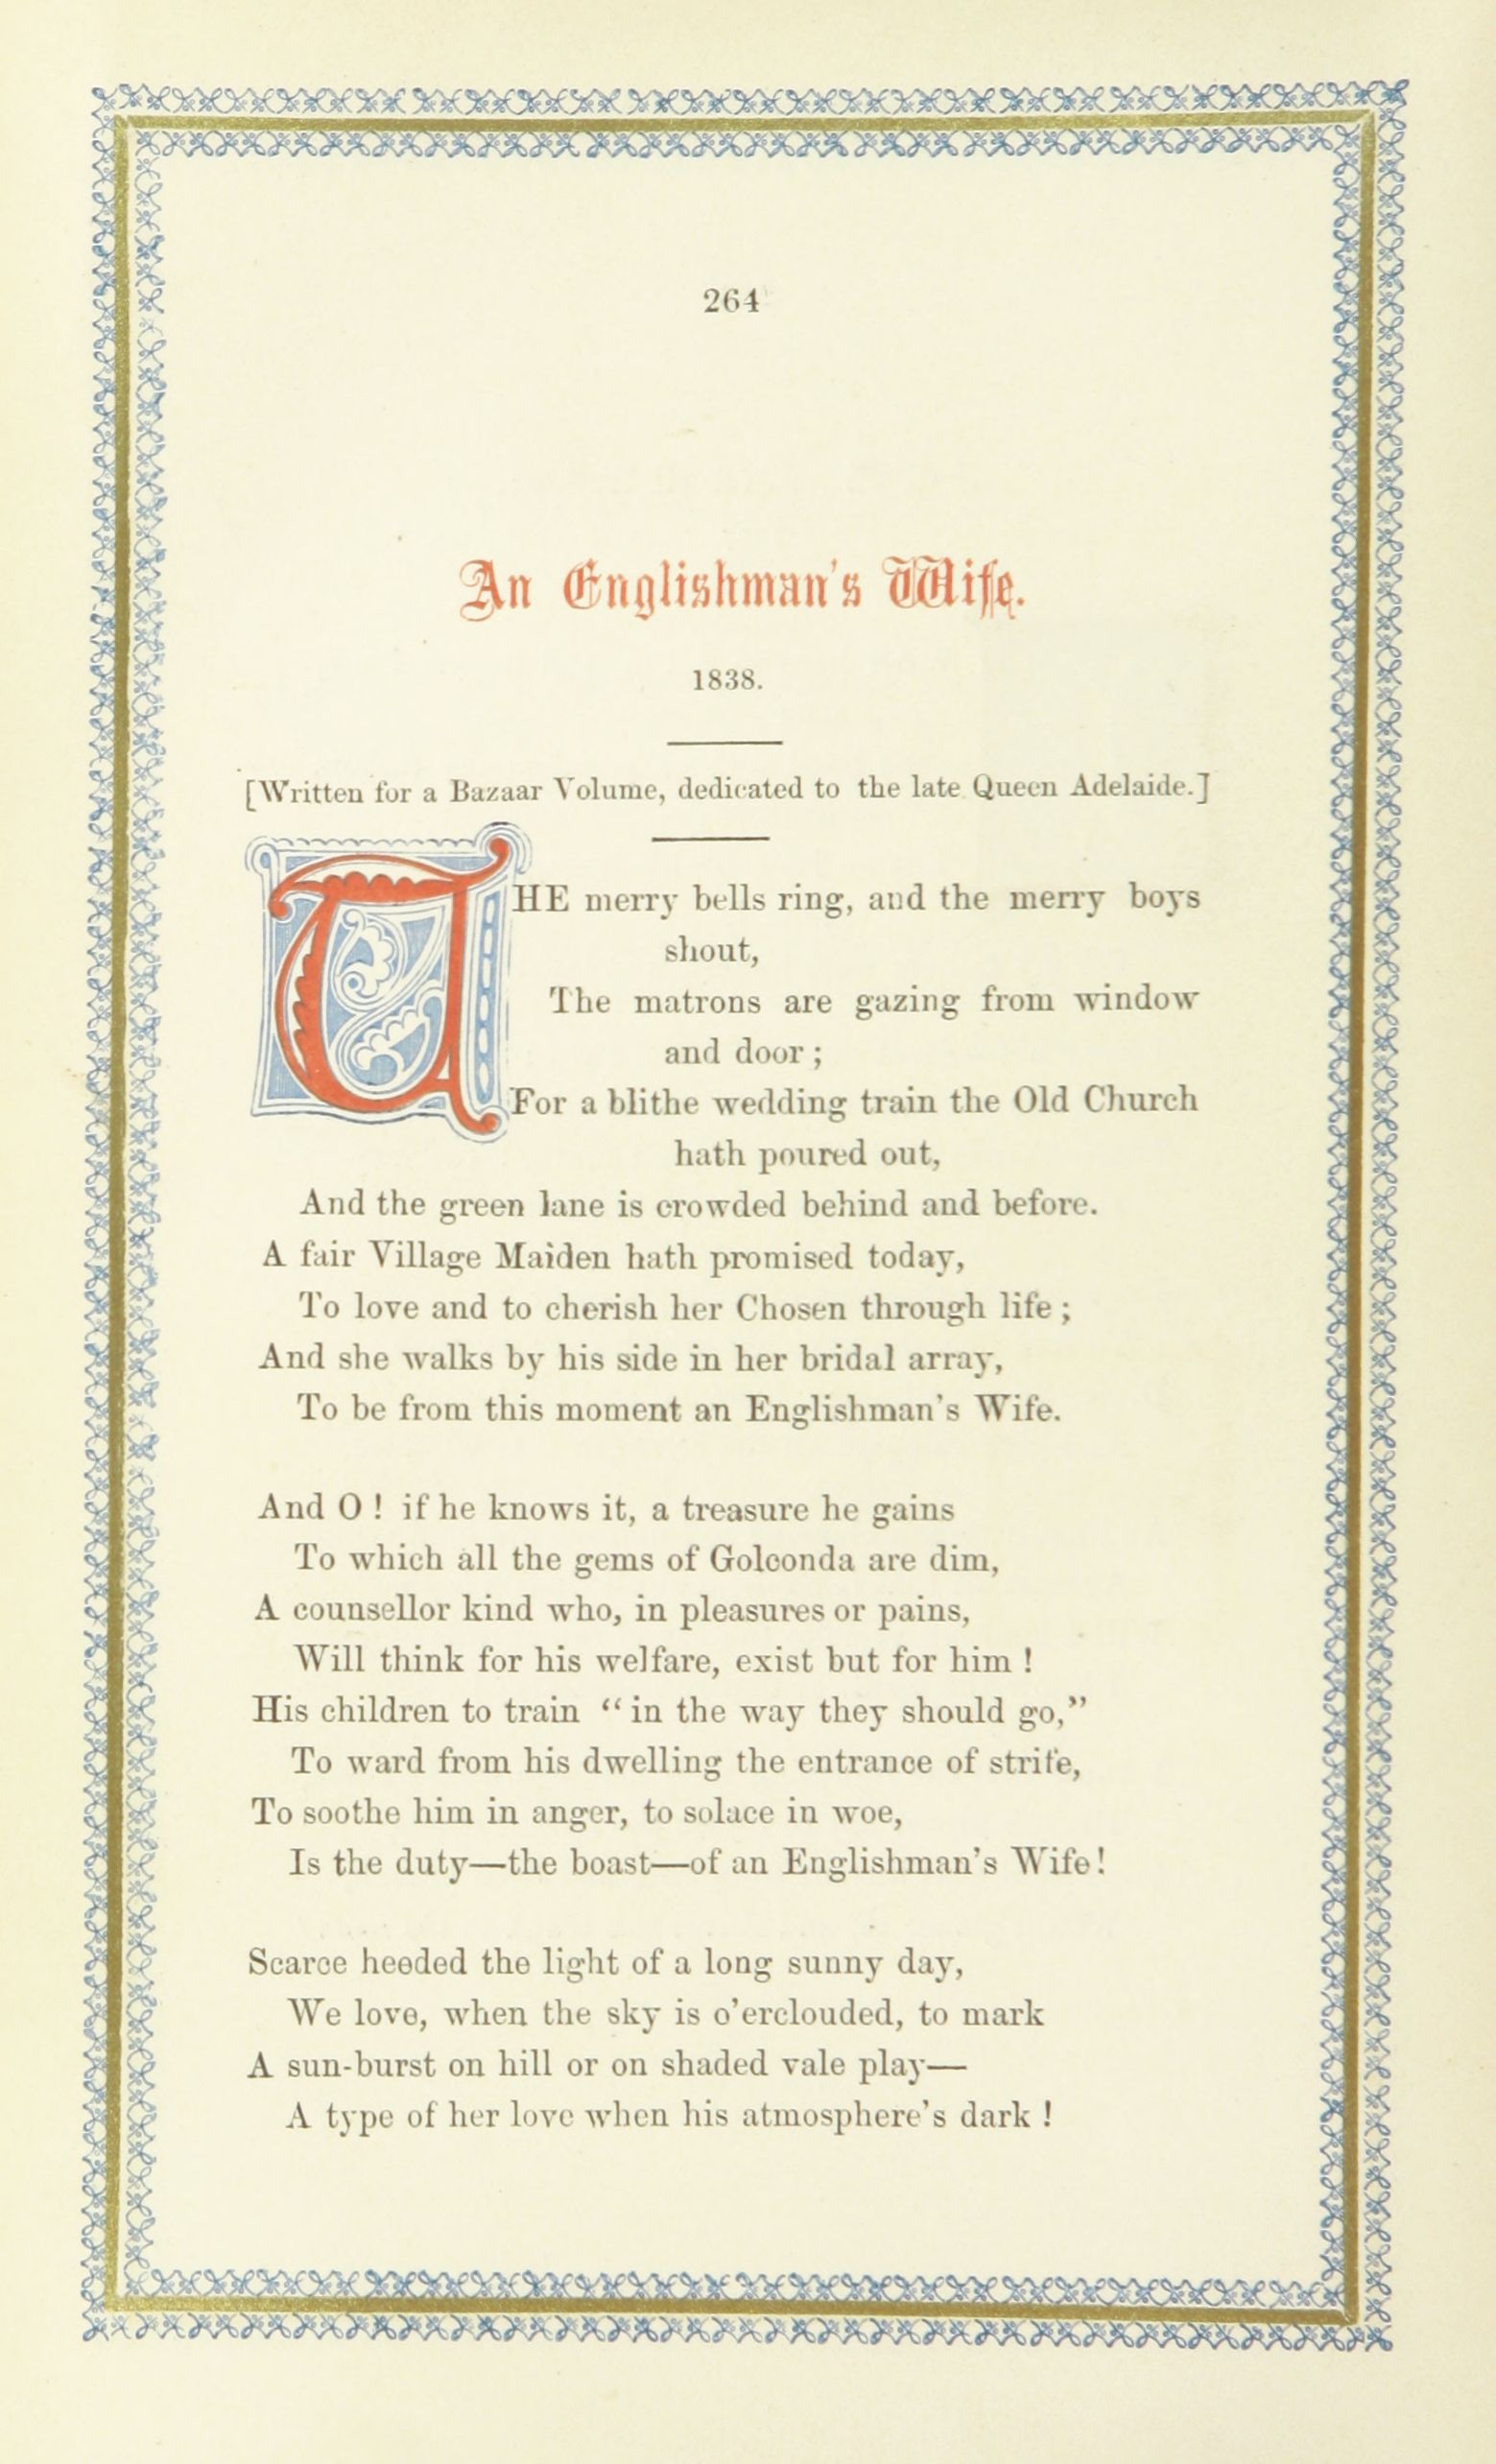 264
An Englishman's Wife.
1838.
[Written for a Bazaar Volume, dedicated to the late Queen Adelaide.]
THE merry bells ring, and the merry boys
shout,
The matrons are gazing from window
and door;
For a blithe wedding train the Old Church
hath poured out,
And the green lane is crowded behind and before.
A fair Village Maiden hath promised today,
To love and to cherish her Chosen through life;
And she walks by his side in her bridal array,
To be from this moment an Englishman's Wife.
And O! if he knows it, a treasure he gains
To which all the gems of Golconda are dim,
A counsellor kind who, in pleasures or pains,
Will think for his welfare, exist but for him!
His children to train "in the way they should go,"
To ward from his dwelling the entrance of strife,
To soothe him in anger, to solace in woe,
Is the duty—the boast—of an Englishman's Wife!
Scarce heeded the light of a long sunny day,
We love, when the sky is o'erclouded, to mark
A sun-burst on hill or on shaded vale play—
A type of her love when his atmosphere's dark!